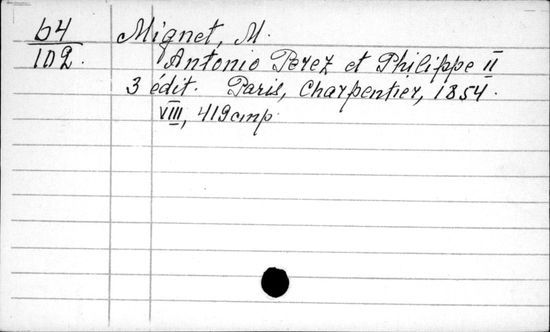 64
102.
Mignet, M.
Antonio Perez et Philippe II
3 édit. Paris, Charpentier, 1854.
VIII, 419 cmp.